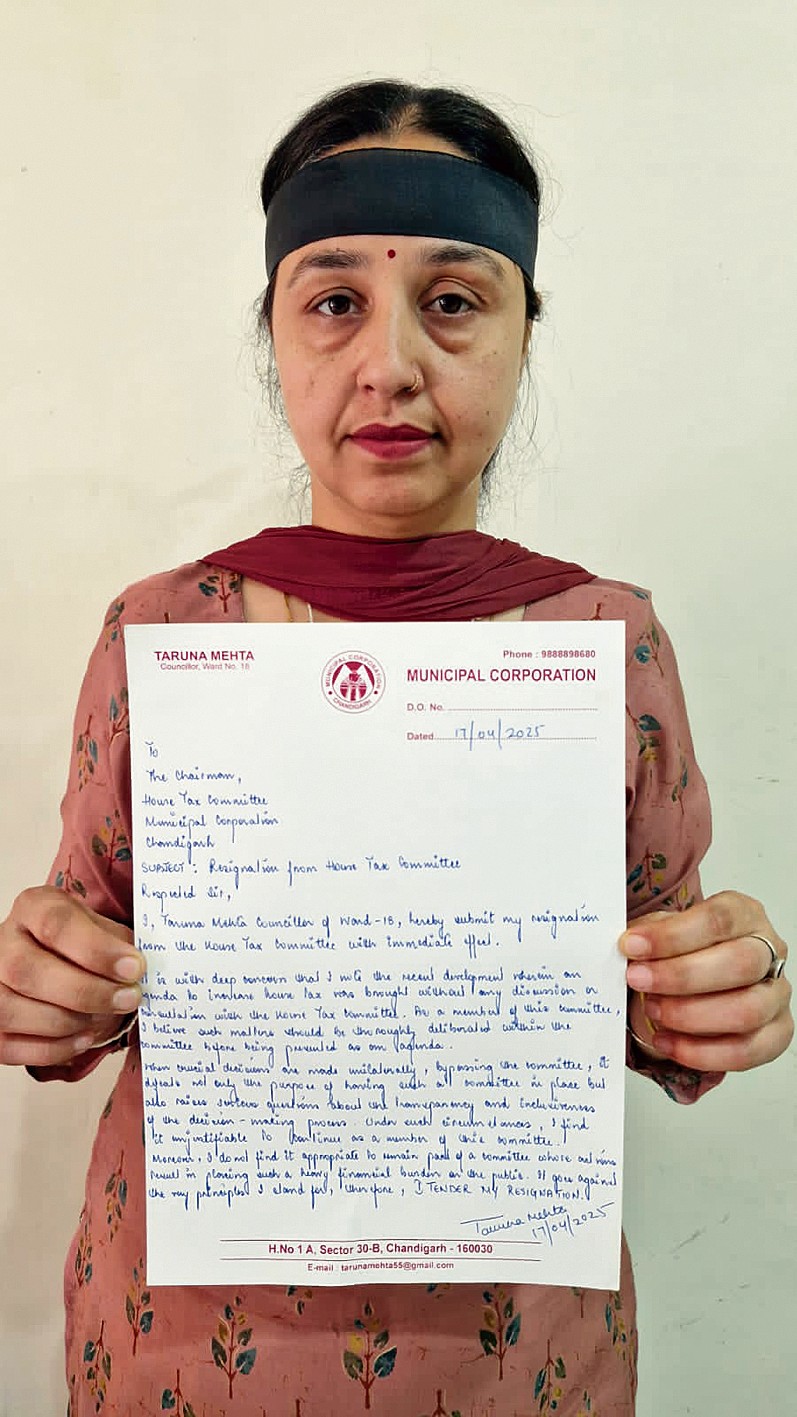 TARUNA MEHTA
Councillor, Ward No. 18
MUNICIPAL CORPORATION
CHANDIGARH
Phone : 9888898680
MUNICIPAL CORPORATION
D.O. No.
Dated 17/04/2025
To
The Chairman,
House Tax Committee
Municipal Corporation
Chandigarh
SUBJECT : Resignation from House Tax Committee
Respected Sir,
I, Taruna Mehta Councillor of Ward-18, hereby submit my resignation
from the House Tax Committee with immediate effect.
It is with deep concern that I note the recent development wherein an
agenda to increase house tax was brought without any discussion or
consultation with the House Tax Committee. As a member of this committee,
I believe such matters should be thoroughly deliberated within the
committee before being presented as an agenda.
When crucial decisions are made unilaterally, bypassing the committee, it
defeats not only the purpose of having such a committee in place but
also raises serious questions about the transparency and inclusiveness
of the decision-making process. Under such circumstances, I find
it unjustifiable to continue as a member of this committee.
Moreover, I do not find it appropriate to remain part of a committee whose actions
result in placing such a heavy financial burden on the public. It goes against
the very principles I stand for, therefore, I TENDER MY RESIGNATION.
Taruna Mehta
17/04/2025
H.No 1 A, Sector 30-B, Chandigarh - 160030
E-mail : tarunamehta55@gmail.com